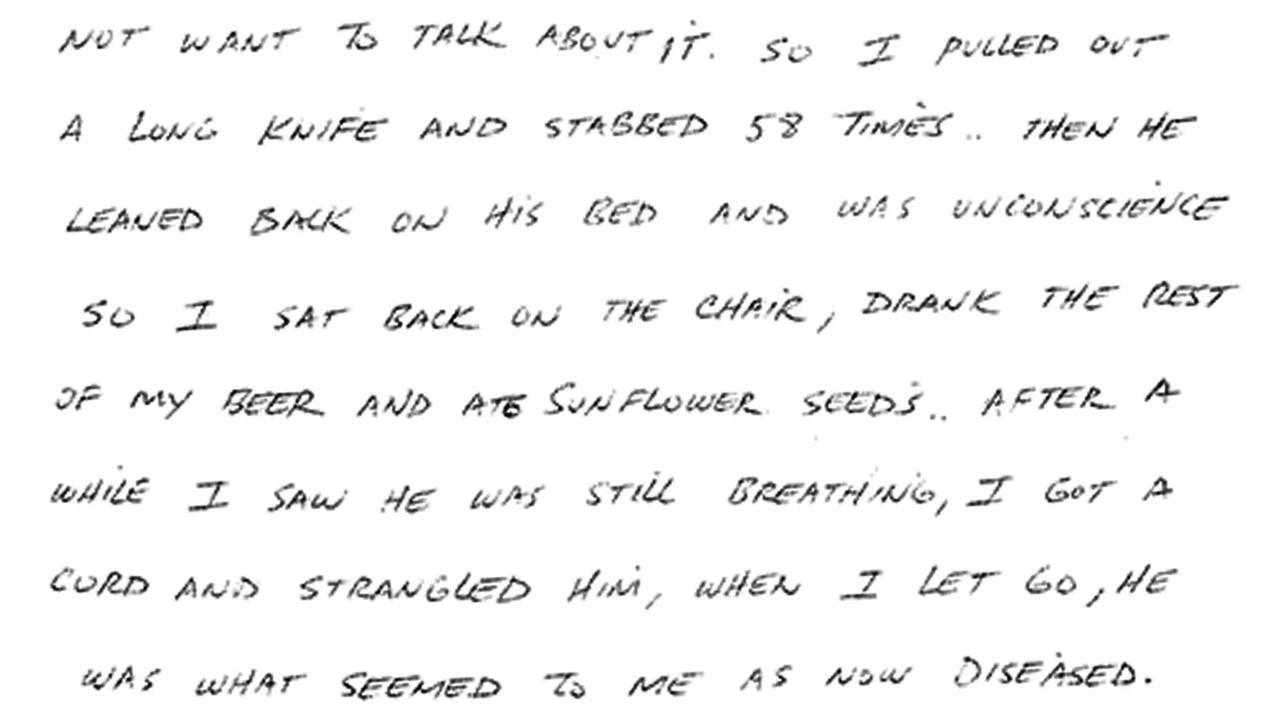 NOT WANT TO TALK ABOUT IT. SO I PULLED OUT
A LONG KNIFE AND STABBED 58 TIMES.. THEN HE
LEANED BACK ON HIS BED AND WAS UNCONSCIENCE
SO I SAT BACK ON THE CHAIR, DRANK THE REST
OF MY BEER AND ATE SUNFLOWER SEEDS.. AFTER A
WHILE I SAW HE WAS STILL BREATHING, I GOT A
CORD AND STRANGLED HIM, WHEN I LET GO, HE
WAS WHAT SEEMED TO ME AS NOW DISEASED.